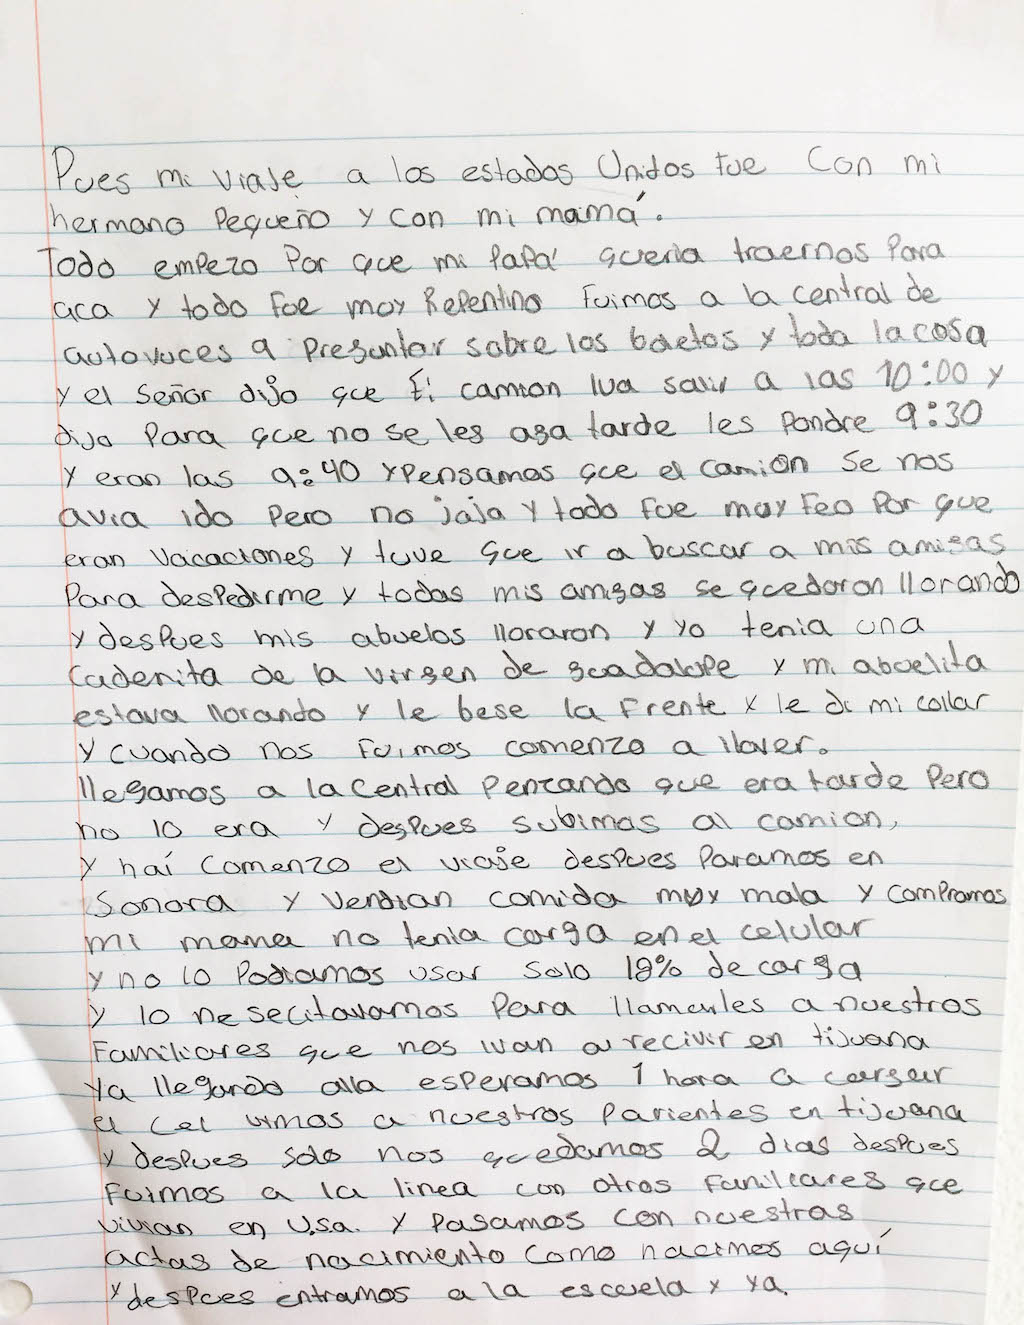 Pues mi viaje a los estados Unidos fue Con mi
hermano Pequeño y con mi mamá.
Todo empezo Por que mi PaPá queria traernos Para
aca y todo fue muy RePentino Fuimos a la central de
autovuces a Preguntar sobre los boletos y toda la cosa
y el Señor dijo que El camion iva salir a las 10:00 y
dijo Para que no se les aga tarde les Pondre 9:30
y eran las 9:40 y Pensamos que el camión se nos
avia ido Pero no jaja y todo fue muy Feo Por que
eran vacaciones y tuve que ir a buscar a mis amigas
Para despedirme y todas mis amigas se quedaron llorando
y desPues mis abuelos lloraron y yo tenia una
cadenita de la virgen de guadaluPe y mi abuelita
estava llorando y le bese la Frente y le di mi collar
y cuando nos Fuimos comenzo a llover.
llegamos a la Central Penzando que era tarde Pero
no lo era y desPues subimos al camion,
y haí Comenzo el viaje desPues Paramos en
Sonora y Vendian comida muy mala y comPramos
mi mama no tenia carga en el celular
y no lo Podiamos usar solo 12% de carga
y lo nesecitavamos Para llamarles a nuestros
Familiares que nos ivan a recivir en tijuana
Ya llegando alla esperamos 1 hora a cargar
el cel vimos a nuestros Parientes en tijuana
y desPues solo nos quedamos 2 dias desPues
Fuimos a la linea con otros Familiares que
vivian en U.S.a. y Pasamos con nuestras
actas de nacimiento Como nacimos aquí
y desPues entramos a la escuela y ya.